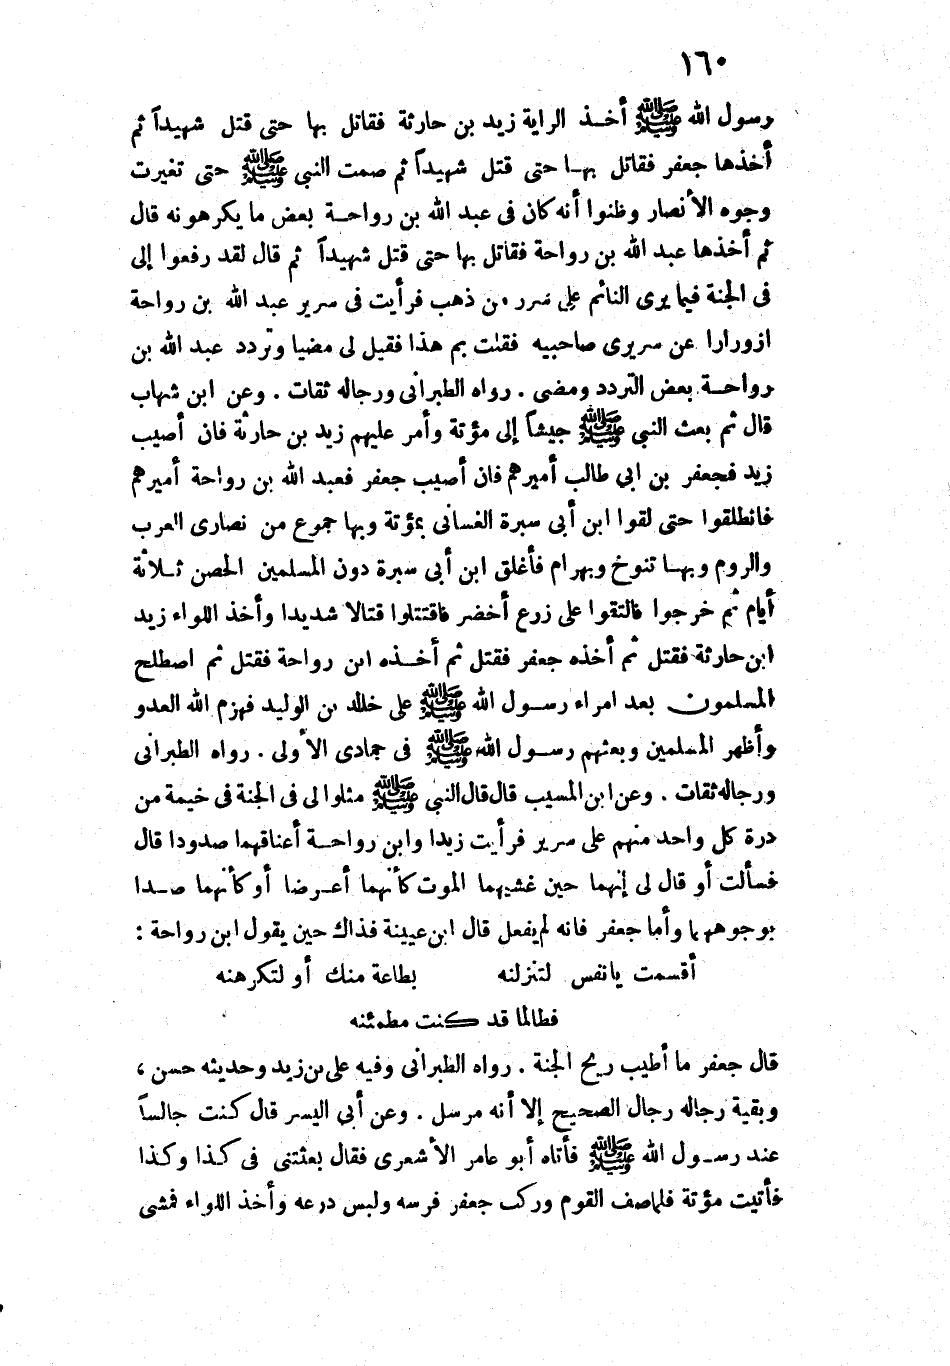 ١٦٠
رسول الله ﷺ أخذ الراية زيد بن حارثة فقاتل بها حتى قتل شهيداً ثم
أخذها جعفر فقاتل بها حتى قتل شهيداً ثم صمت النبي ﷺ حتى تغيرت
وجوه الأنصار وظنوا أنه كان فى عبد الله بن رواحة بعض ما يكرهونه قال
ثم أخذها عبد الله بن رواحة فقاتل بها حتى قتل شهيداً ثم قال لقد رفعوا إلى
فى الجنة فيما يرى النائم على سرر من ذهب فرأيت فى سرير عبد الله بن رواحة
ازورارا عن سريرى صاحبيه فقلت بم هذا فقيل لى مضيا وتردد عبد الله بن
رواحة بعض التردد ومضى . رواه الطبرانى ورجاله ثقات . وعن ابن شهاب
قال ثم بعث النبي ﷺ جيشاً إلى مؤتة وأمر عليهم زيد بن حارثة فان أصيب
زيد فجعفر بن ابي طالب أميرهم فان أصيب جعفر فعبد الله بن رواحة أميرهم
فانطلقوا حتى لقوا ابن أبى سبرة الغسانى بمؤتة وبها جموع من نصارى العرب
والروم وبها تنوخ وبهرام فأغلق ابن أبى سبرة دون المسلمين الحصن ثلاثة
أيام ثم خرجوا فالتقوا على زرع أخضر فاقتتلوا قتالا شديدا وأخذ اللواء زيد
ابن حارثة فقتل ثم أخذه جعفر فقتل ثم أخذه ابن رواحة فقتل ثم اصطلح
المسلمون بعد امراء رسول الله ﷺ على خالد بن الوليد فهزم الله العدو
وأظهر المسلمين وبعثهم رسول الله ﷺ فى جمادى الأولى . رواه الطبرانى
ورجاله ثقات . وعن ابن المسيب قال قال النبي ﷺ مثلوا لى فى الجنة فى خيمة من
درة كل واحد منهم على سرير فرأيت زيدا وابن رواحة أعناقهما صدودا قال
فسألت أو قال لى إنهما حين غشيهما الموت كأنهما أعرضا أو كأنهما صدا
بوجوههما وأما جعفر فانه لم يفعل قال ابن عيينة فذاك حين يقول ابن رواحة :
أقسمت يانفس لتنزلنه بطاعة منك أو لتكرهنه
فطالما قد كنت مطمئنه
قال جعفر ما أطيب ريح الجنة . رواه الطبرانى وفيه على بن زيد وحديثه حسن ،
وبقية رجاله رجال الصحيح إلا أنه مرسل . وعن أبى اليسر قال كنت جالساً
عند رسول الله ﷺ فأتاه أبو عامر الأشعرى فقال بعثتنى فى كذا وكذا
فأتيت مؤتة فلما صف القوم وركب جعفر فرسه ولبس درعه وأخذ اللواء فمشى